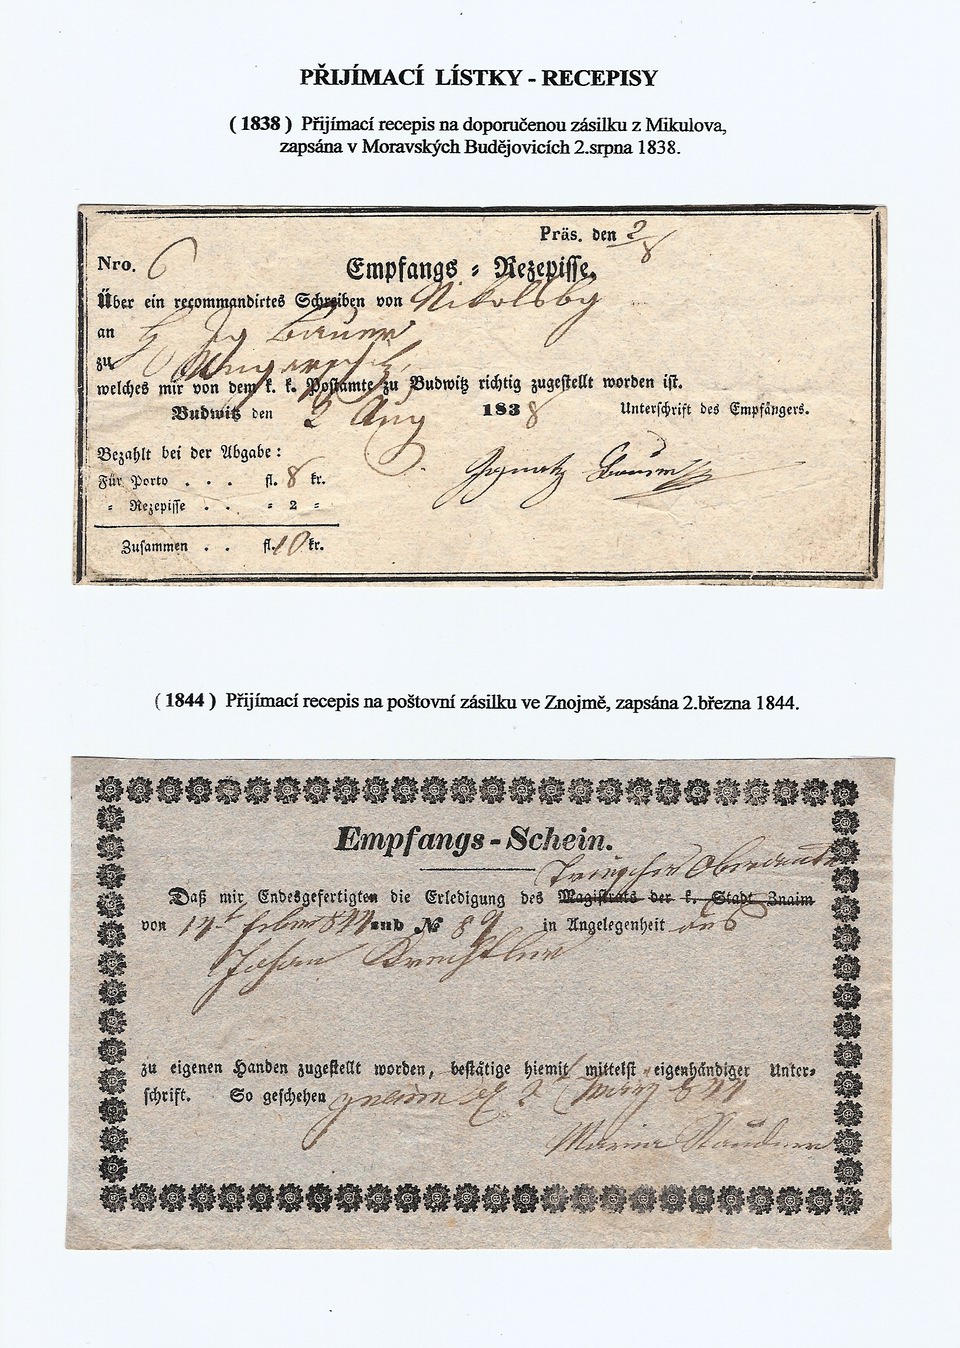 PŘIJÍMACÍ LÍSTKY - RECEPISY
( 1838 ) Přijímací recepis na doporučenou zásilku z Mikulova,
zapsána v Moravských Budějovicích 2.srpna 1838.
Präs. den 2/8
Nro. 6
Empfangs = Rezepisse.
Über ein recommandirtes Schreiben von Nikolsbg
an H Ig Bauer
zu
welches mir von dem k. k. Postamte zu Budwitz richtig zugestellt worden ist.
Budwitz den 2 Aug 1838 Unterschrift des Empfängers.
Bezahlt bei der Abgabe:
Für Porto . . . fl. 8 kr.
= Rezepisse . . = 2 =
Ignatz Bauer
Zusammen . . fl. 10 kr.
( 1844 ) Přijímací recepis na poštovní zásilku ve Znojmě, zapsána 2.března 1844.
Empfangs-Schein.
Daß mir Endesgefertigten die Erledigung des Magistrats der k. Stadt Znaim
von 14t 844 und № 89 in Angelegenheit des
Johann
zu eigenen Handen zugestellt worden, bestätige hiemit mittelst eigenhändiger Unter-
schrift. So geschehen Znaim 2t März 844
Maria